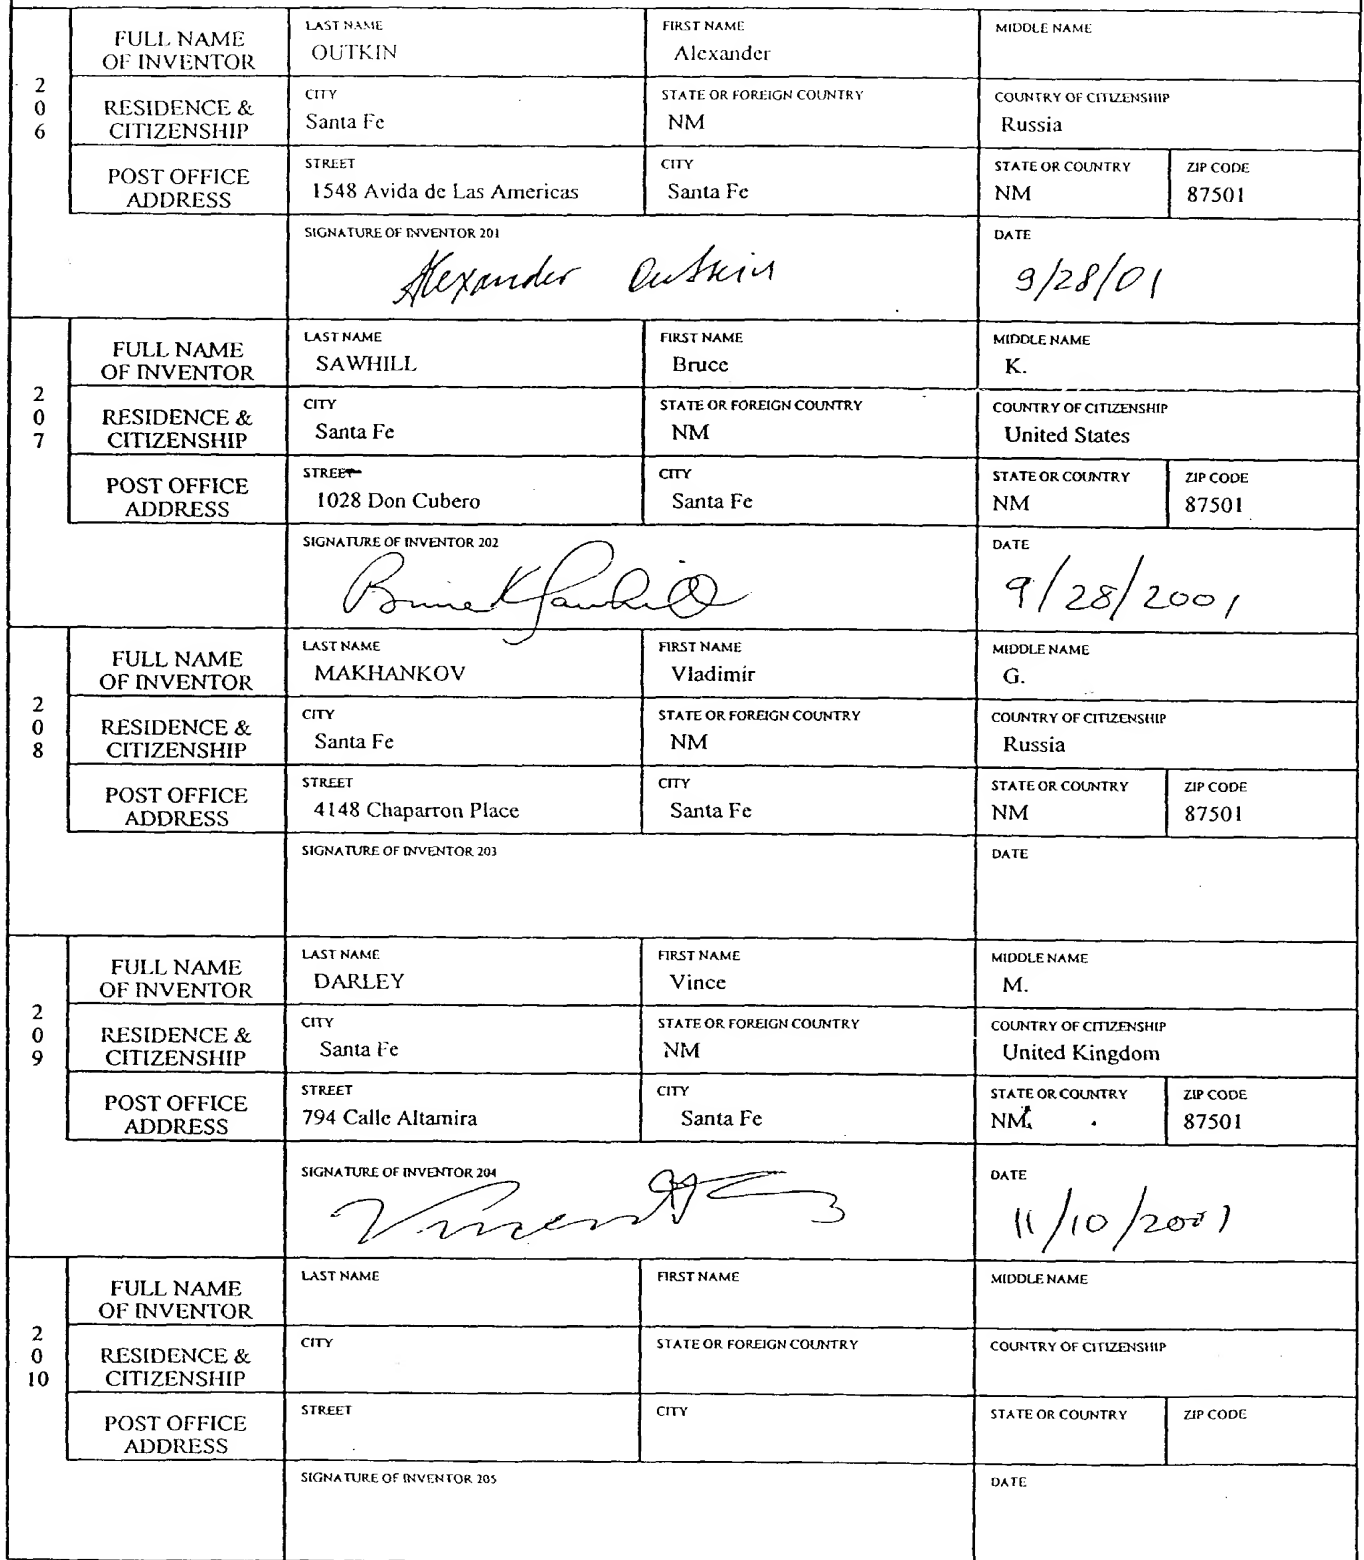 FULL NAME OF INVENTOR
LAST NAME
OUTKIN
FIRST NAME
Alexander
MIDDLE NAME
2
0
6
RESIDENCE & CITIZENSHIP
CITY
Santa Fe
STATE OR FOREIGN COUNTRY
NM
COUNTRY OF CITIZENSHIP
Russia
POST OFFICE ADDRESS
STREET
1548 Avida de Las Americas
CITY
Santa Fe
STATE OR COUNTRY
NM
ZIP CODE
87501
SIGNATURE OF INVENTOR 201
Alexander Outkin
DATE
9/28/01
FULL NAME OF INVENTOR
LAST NAME
SAWHILL
FIRST NAME
Bruce
MIDDLE NAME
K.
2
0
7
RESIDENCE & CITIZENSHIP
CITY
Santa Fe
STATE OR FOREIGN COUNTRY
NM
COUNTRY OF CITIZENSHIP
United States
POST OFFICE ADDRESS
STREET
1028 Don Cubero
CITY
Santa Fe
STATE OR COUNTRY
NM
ZIP CODE
87501
SIGNATURE OF INVENTOR 202
Bruce K Sawhill
DATE
9/28/2001
FULL NAME OF INVENTOR
LAST NAME
MAKHANKOV
FIRST NAME
Vladimir
MIDDLE NAME
G.
2
0
8
RESIDENCE & CITIZENSHIP
CITY
Santa Fe
STATE OR FOREIGN COUNTRY
NM
COUNTRY OF CITIZENSHIP
Russia
POST OFFICE ADDRESS
STREET
4148 Chaparron Place
CITY
Santa Fe
STATE OR COUNTRY
NM
ZIP CODE
87501
SIGNATURE OF INVENTOR 203
DATE
FULL NAME OF INVENTOR
LAST NAME
DARLEY
FIRST NAME
Vince
MIDDLE NAME
M.
2
0
9
RESIDENCE & CITIZENSHIP
CITY
Santa Fe
STATE OR FOREIGN COUNTRY
NM
COUNTRY OF CITIZENSHIP
United Kingdom
POST OFFICE ADDRESS
STREET
794 Calle Altamira
CITY
Santa Fe
STATE OR COUNTRY
NM
ZIP CODE
87501
SIGNATURE OF INVENTOR 204
Vincent
DATE
11/10/2001
FULL NAME OF INVENTOR
LAST NAME
FIRST NAME
MIDDLE NAME
2
0
10
RESIDENCE & CITIZENSHIP
CITY
STATE OR FOREIGN COUNTRY
COUNTRY OF CITIZENSHIP
POST OFFICE ADDRESS
STREET
CITY
STATE OR COUNTRY
ZIP CODE
SIGNATURE OF INVENTOR 205
DATE